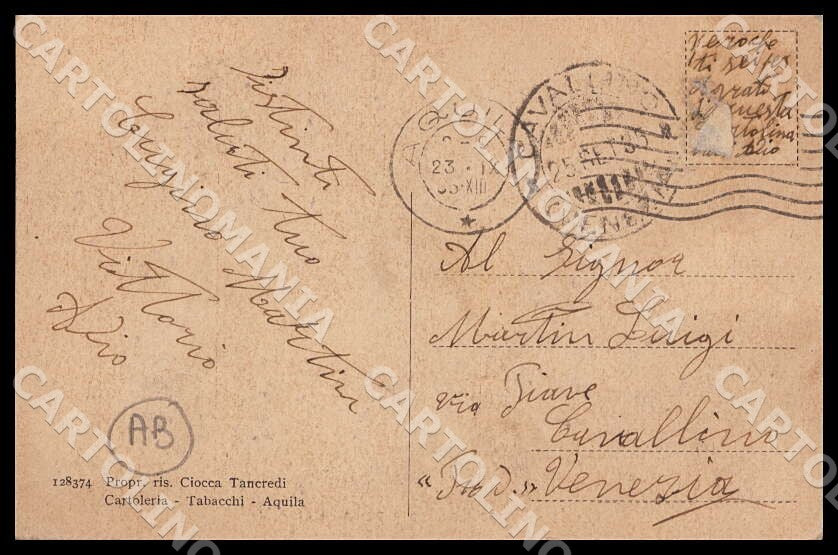 Distinti
saluti tuo
Cugino Martin
Vittorio
Adio
AB
128374 Propr. ris. Ciocca Tancredi
Cartoleria - Tabacchi - Aquila
AQUIL
23 . IX
35-XIII
CAVALLINO
25.SET.35
VENEZIA
ti sei
di questa
Cartolina
Adio
Al Signor
Martin Luigi
via Piave
Cavallino
"Prov." Venezia
CARTOLINOMANIA